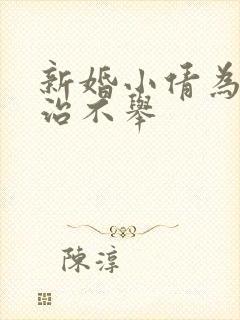 新婚小倩為
治不舉
陳淳